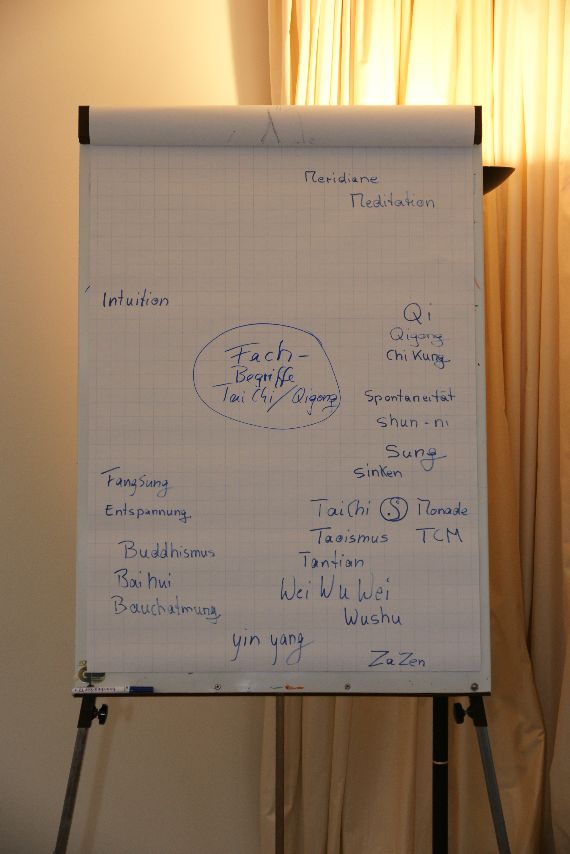 Meridiane
Meditation
Intuition
Qi
Qigong
Chi Kung
Fach-
Begriffe
Tai Chi / Qigong
Spontaneität
shun - ni
Sung
sinken
Fangsung
Entspannung
Tai Chi Monade
Taoismus TCM
Tantian
Buddhismus
Bai hui
Bauchatmung
Wei Wu Wei
Wushu
yin yang
ZaZen